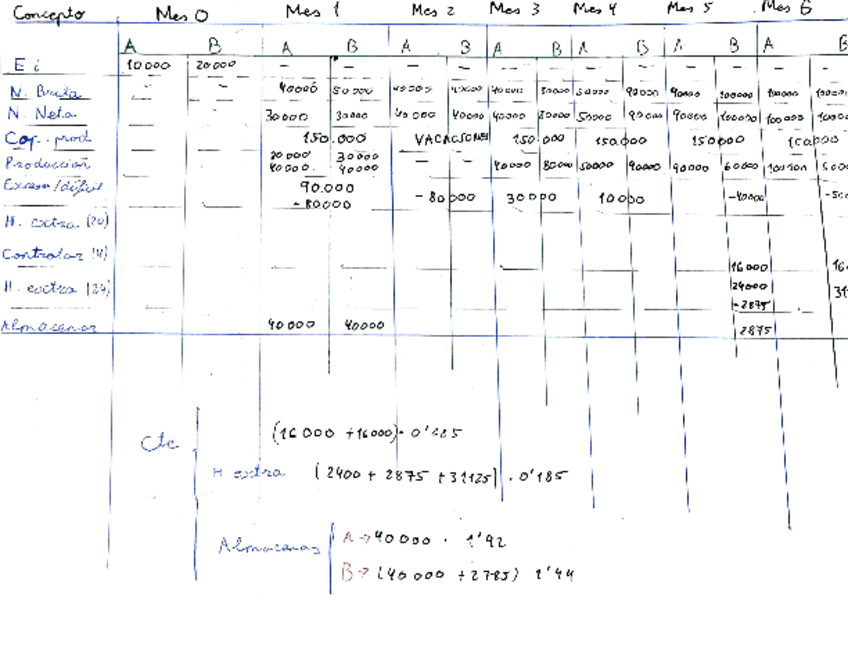 Concepto Mes 0 Mes 1 Mes 2 Mes 3 Mes 4 Mes 5 Mes 6
A B A B A B A B A B A B A B
E i 10000 20000 - - - - - - - - - - - -
N. Bruta - - 40000 50000 40000 40000 40000 80000 50000 90000 90000 100000 100000
N. Neta - - 30000 30000 40000 40000 40000 80000 50000 90000 90000 100000 100000
Cap. prod 150.000 VACACIONES 150.000 150.000 150000 100.000
Producción 20000 30000 - - 40000 80000 50000 90000 90000 60000 100000
40000 40000
Exceso/déficit 90.000
-80000 -80000 30000 10000 -40000
H. extra (20)
Controlar 16000
H. extra (24) 24000
-2875
Almacenar 40000 40000 2875
Cte (16000 +16000)·
H extra (2400 + 2875 +31125) · 0'185
Almacenas A→40000 · 1'92
B→(40000 +2785) 1'44